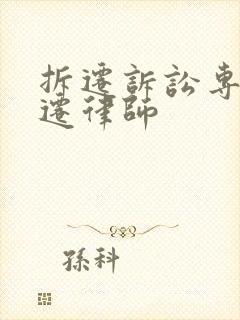 拆遷訴訟專
遷律師
孫科